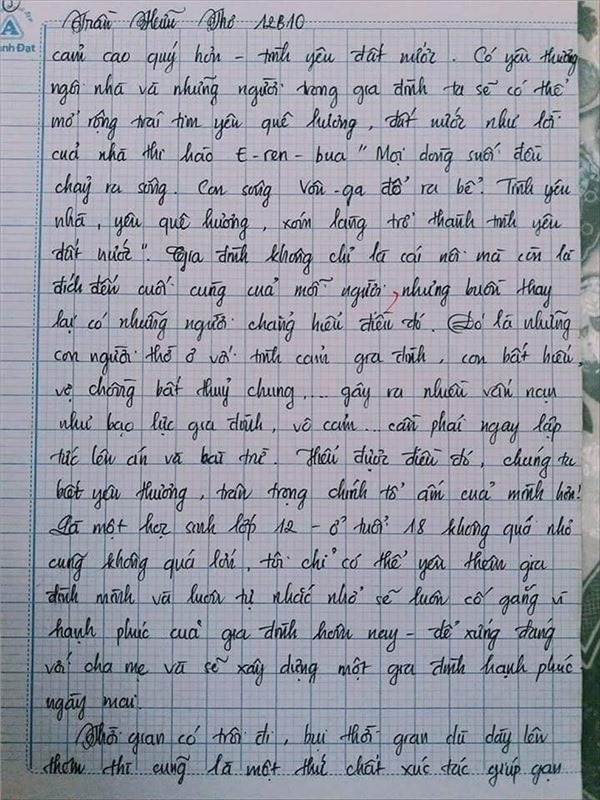 A
ành Đạt
Trần Hữu Thơ 12B10
cảm cao quý hơn - tình yêu đất nước. Có yêu thương
ngôi nhà và những người trong gia đình ta sẽ có thể
mở rộng trái tim yêu quê hương, đất nước như lời
của nhà thi hào E-ren-bua "Mọi dòng suối đều
chảy ra sông. Con sông Vôn-ga đổ ra bể. Tình yêu
nhà, yêu quê hương, xóm làng trở thành tình yêu
đất nước". Gia đình không chỉ là cái nôi mà còn là
đích đến cuối cùng của mỗi người, nhưng buồn thay
lại có những người chẳng hiểu điều đó. Đó là những
con người thờ ơ với tình cảm gia đình, con bất hiếu,
vợ chồng bất thuỷ chung.... gây ra nhiều vấn nạn
như bạo lực gia đình, vô cảm... cần phải ngay lập
tức lên án và bài trừ. Hiểu được điều đó, chúng ta
biết yêu thương, trân trọng chính tổ ấm của mình hơn!
Là một học sinh lớp 12 - ở tuổi 18 không quá nhỏ
cũng không quá lớn, tôi chỉ có thể yêu thêm gia
đình mình và luôn tự nhắc nhở sẽ luôn cố gắng vì
hạnh phúc của gia đình hôm nay - để xứng đáng
với cha mẹ và sẽ xây dựng một gia đình hạnh phúc
ngày mai.
Thời gian có trôi đi, bụi thời gian dù dày lên
thêm thì cũng là một thứ chất xúc tác giúp gạn